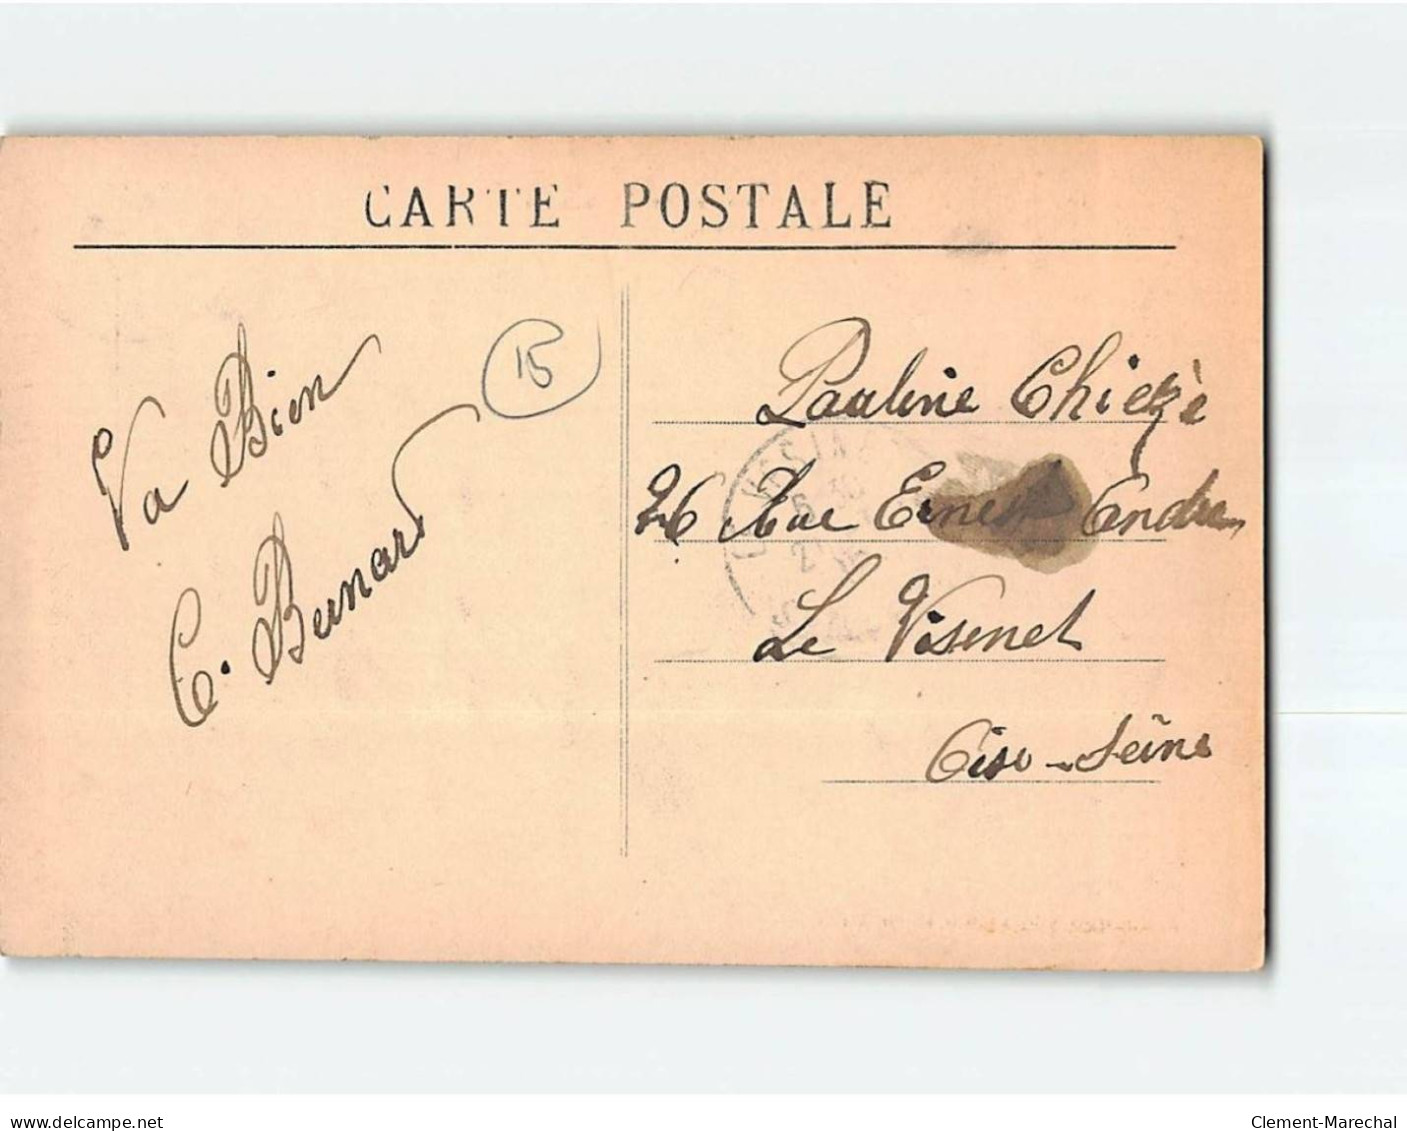 CARTE POSTALE
Va Bien
C. Bernard
15
Pauline Chiezè
26 Rue Ernest Andre
Le Visenet
Oise-Seine
delcampe.net
Clement-Marechal